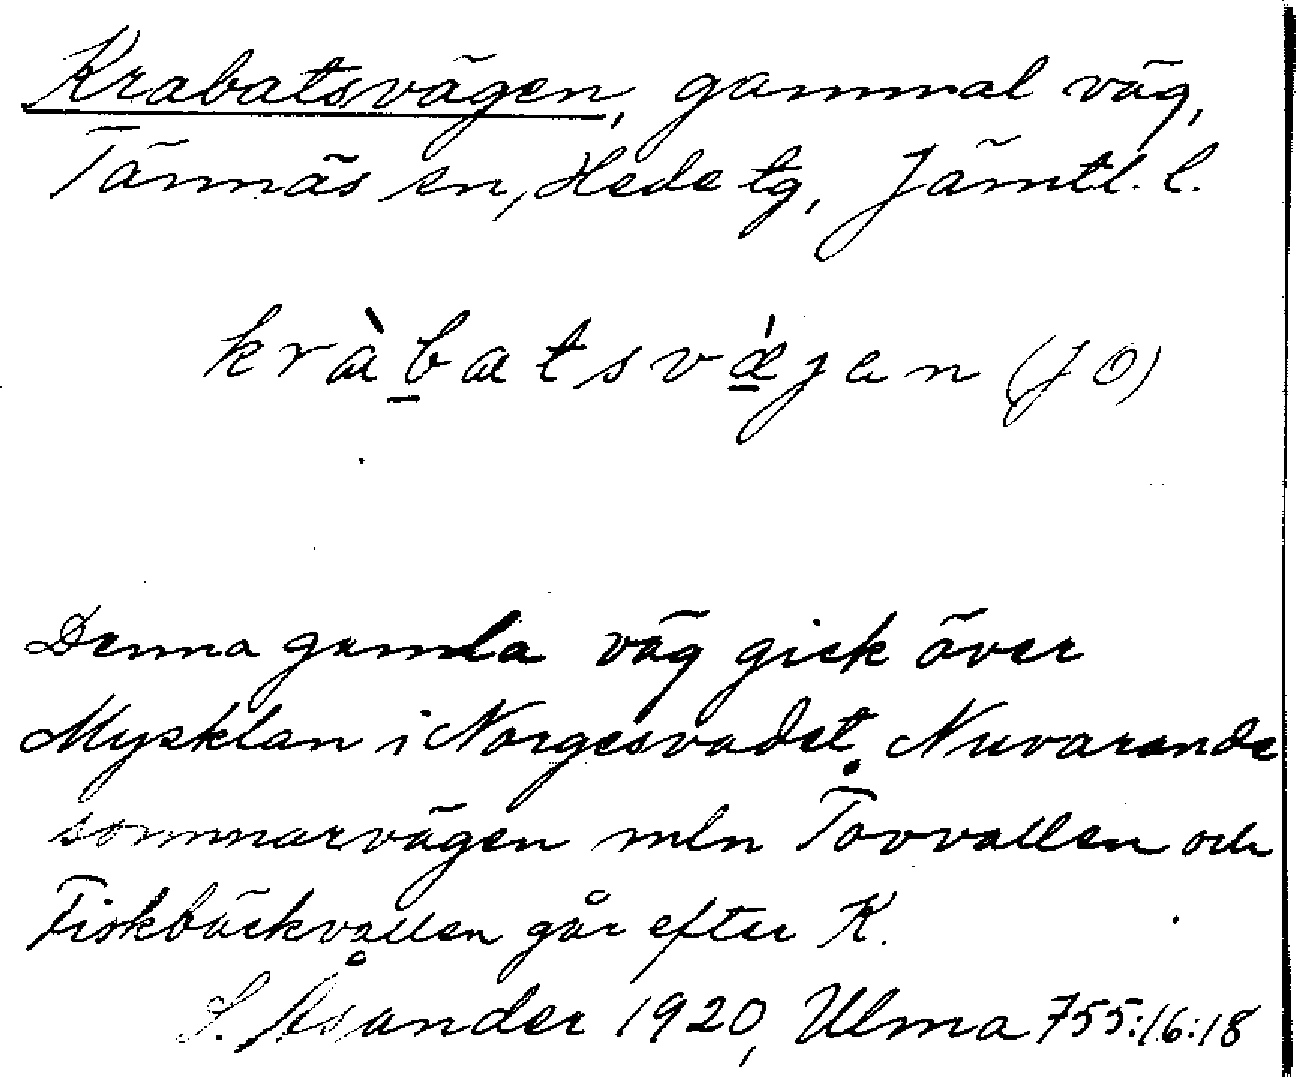 Krabatsvägen, gammal väg,
Tännäs sn, Hede tg, Jämtl. l.
kràbatsvǽjen (JO)
Denna gamla väg gick över
Mysklan i Norgesvadet. Nuvarande
sommarvägen mln Torvvallen och
Fiskbäckvallen går efter K.
S. Åsander 1920, Ulma 755:16:18